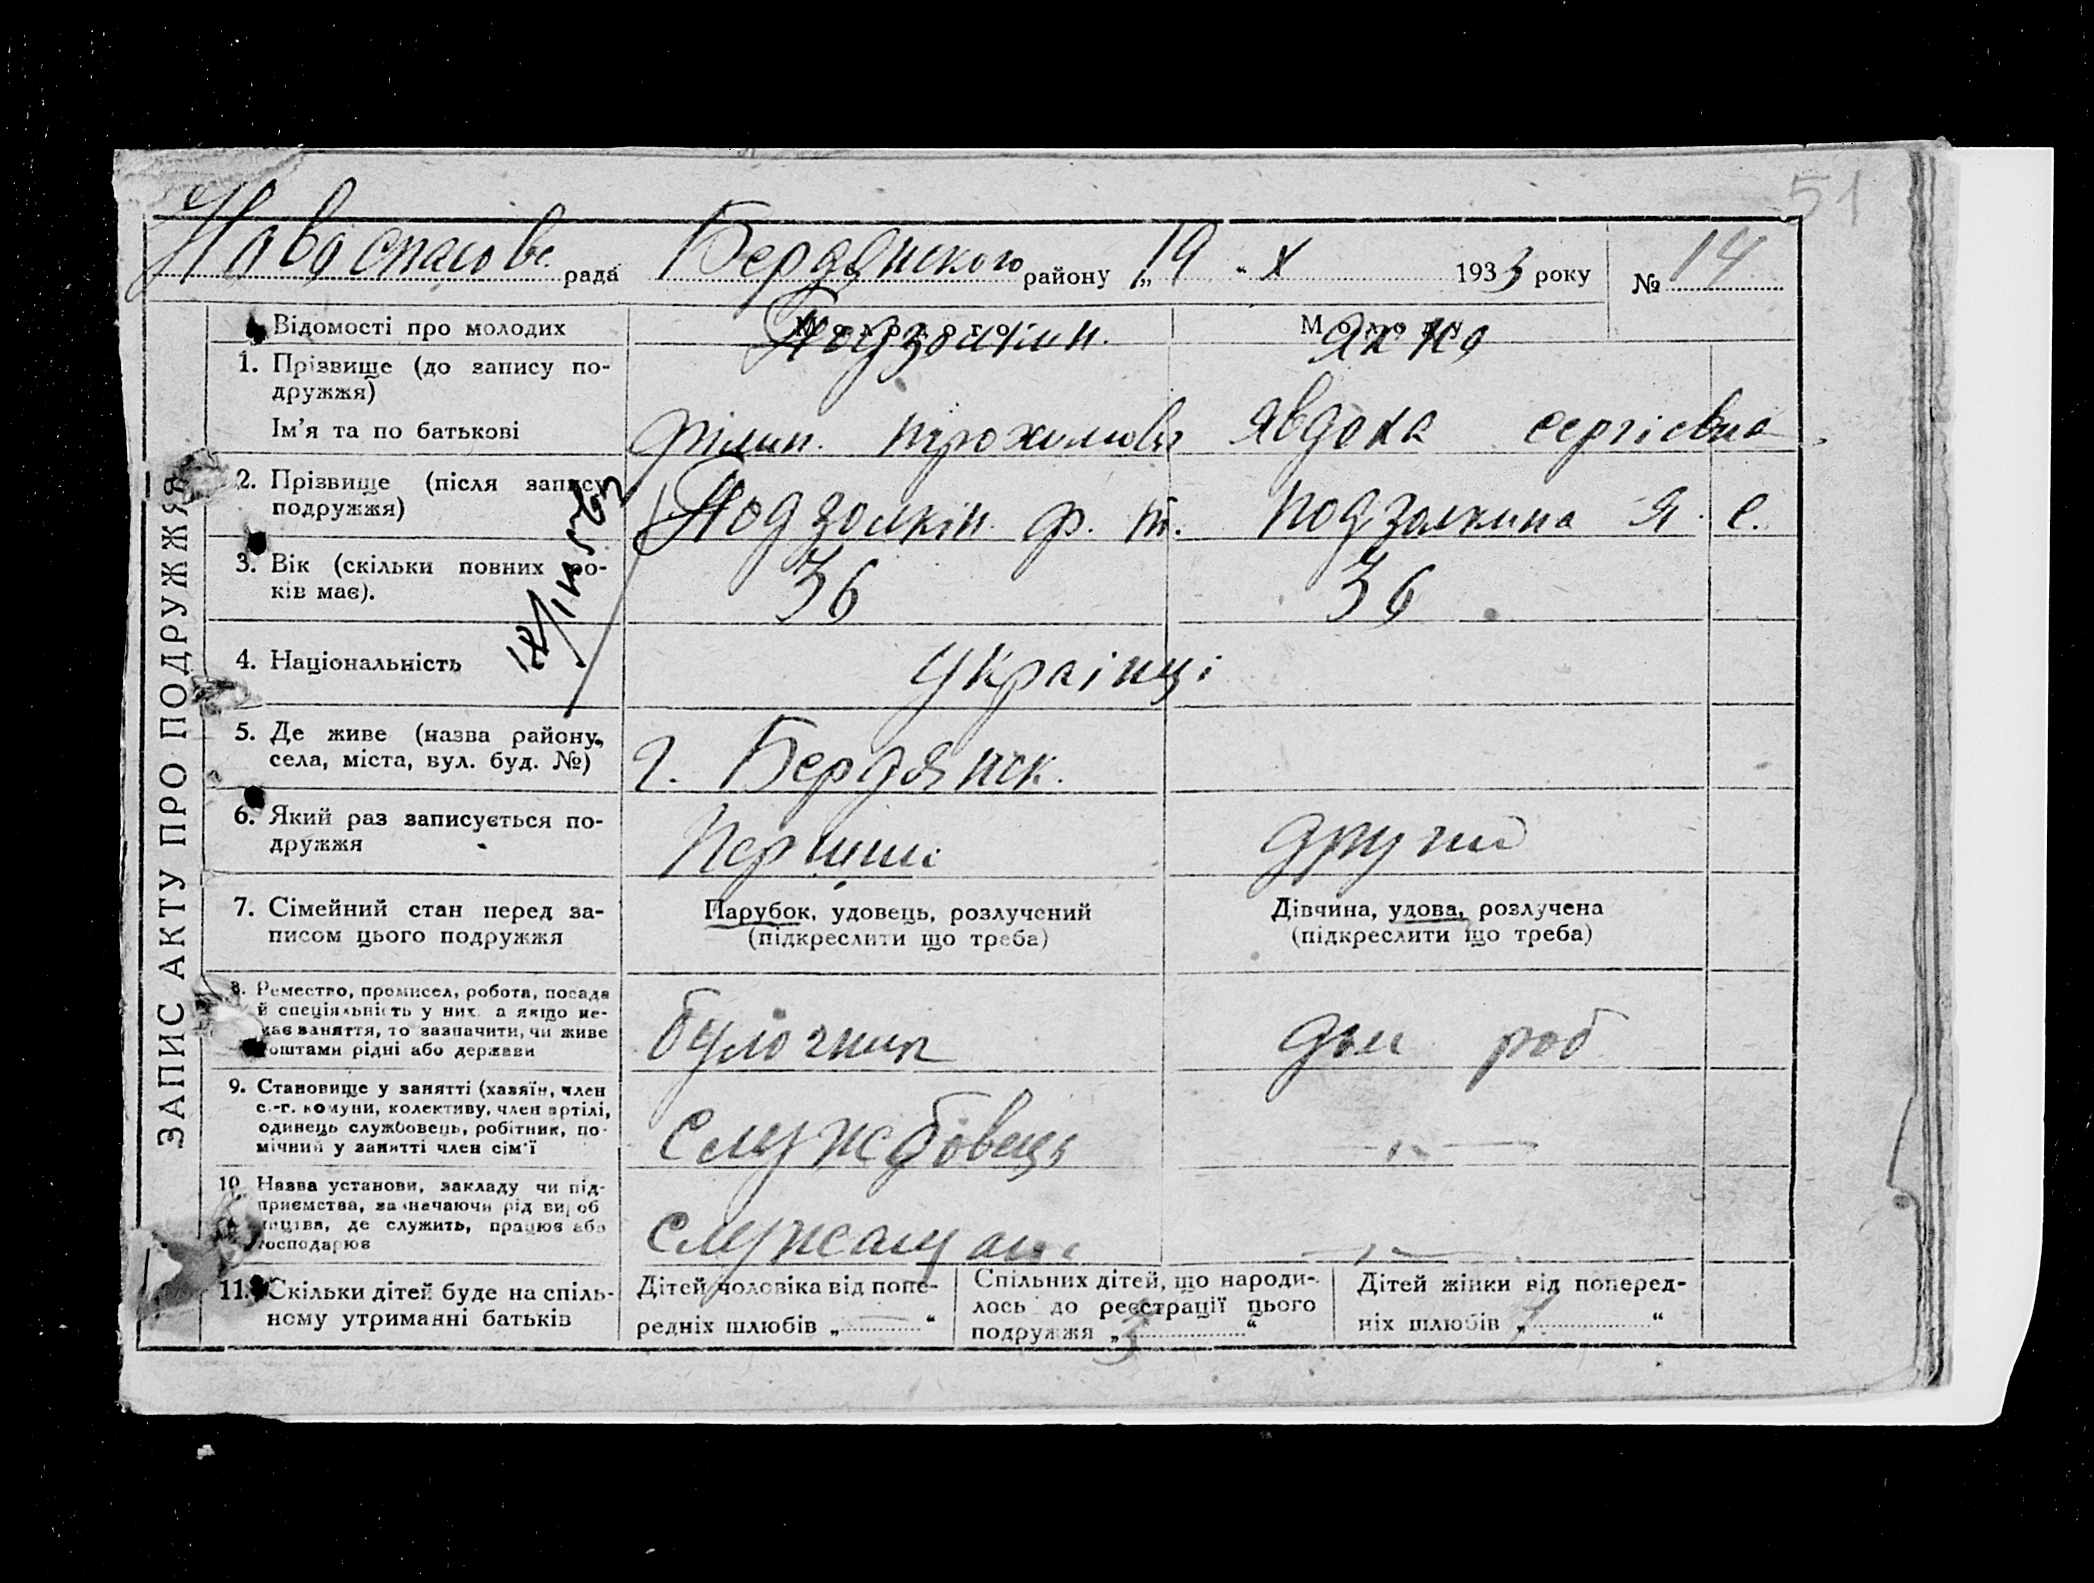 51
Новоспасовс рада Бердянского району „19“ X 1933 року № 14
ЗАПИС АКТУ ПРО ПОДРУЖЖЯ
Відомості про молодих Молодого Молоду
1. Прізвище (до запису по-
дружжя)
Подзолкін Яхно
Ім'я та по батькові Філип Трохимович Явдоха Сергієвна
2. Прізвище (після запису
подружжя)
Подзолкін Ф. Т. Подзолкина Я. С.
3. Вік (скільки повних ро-
ків має).
36 36
4. Національність Українці
5. Де живе (назва району,
села, міста, вул. буд. №)
г. Бердянск.
6. Який раз записується по-
дружжя
Перший другий
7. Сімейний стан перед за-
писом цього подружжя
Парубок, удовець, розлучений
(підкреслити що треба)
Дівчина, удова, розлучена
(підкреслити що треба)
8. Ремество, промисел, робота, посада
й спеціяльність у них а якщо не-
має заняття, то зазначити, чи живе
коштами рідні або держави
булочник дом роб
9. Становище у занятті (хазяїн, член
с.-г. комуни, колективу, член артілі,
одинець службовець, робітник, по-
мічний у занятті член сім'ї
Службовець — „ —
10. Назва установи, закладу чи під-
приємства, зазначаючи рід вироб
ництва, де служить, працює або
господарює
— „ —
11. Скільки дітей буде на спіль-
ному утриманні батьків
Дітей чоловіка від попе-
редніх шлюбів „ — “
Спільних дітей, що народи-
лось до реєстрації цього
подружжя „ 3 “
Дітей жінки від поперед-
ніх шлюбів „ 1 “